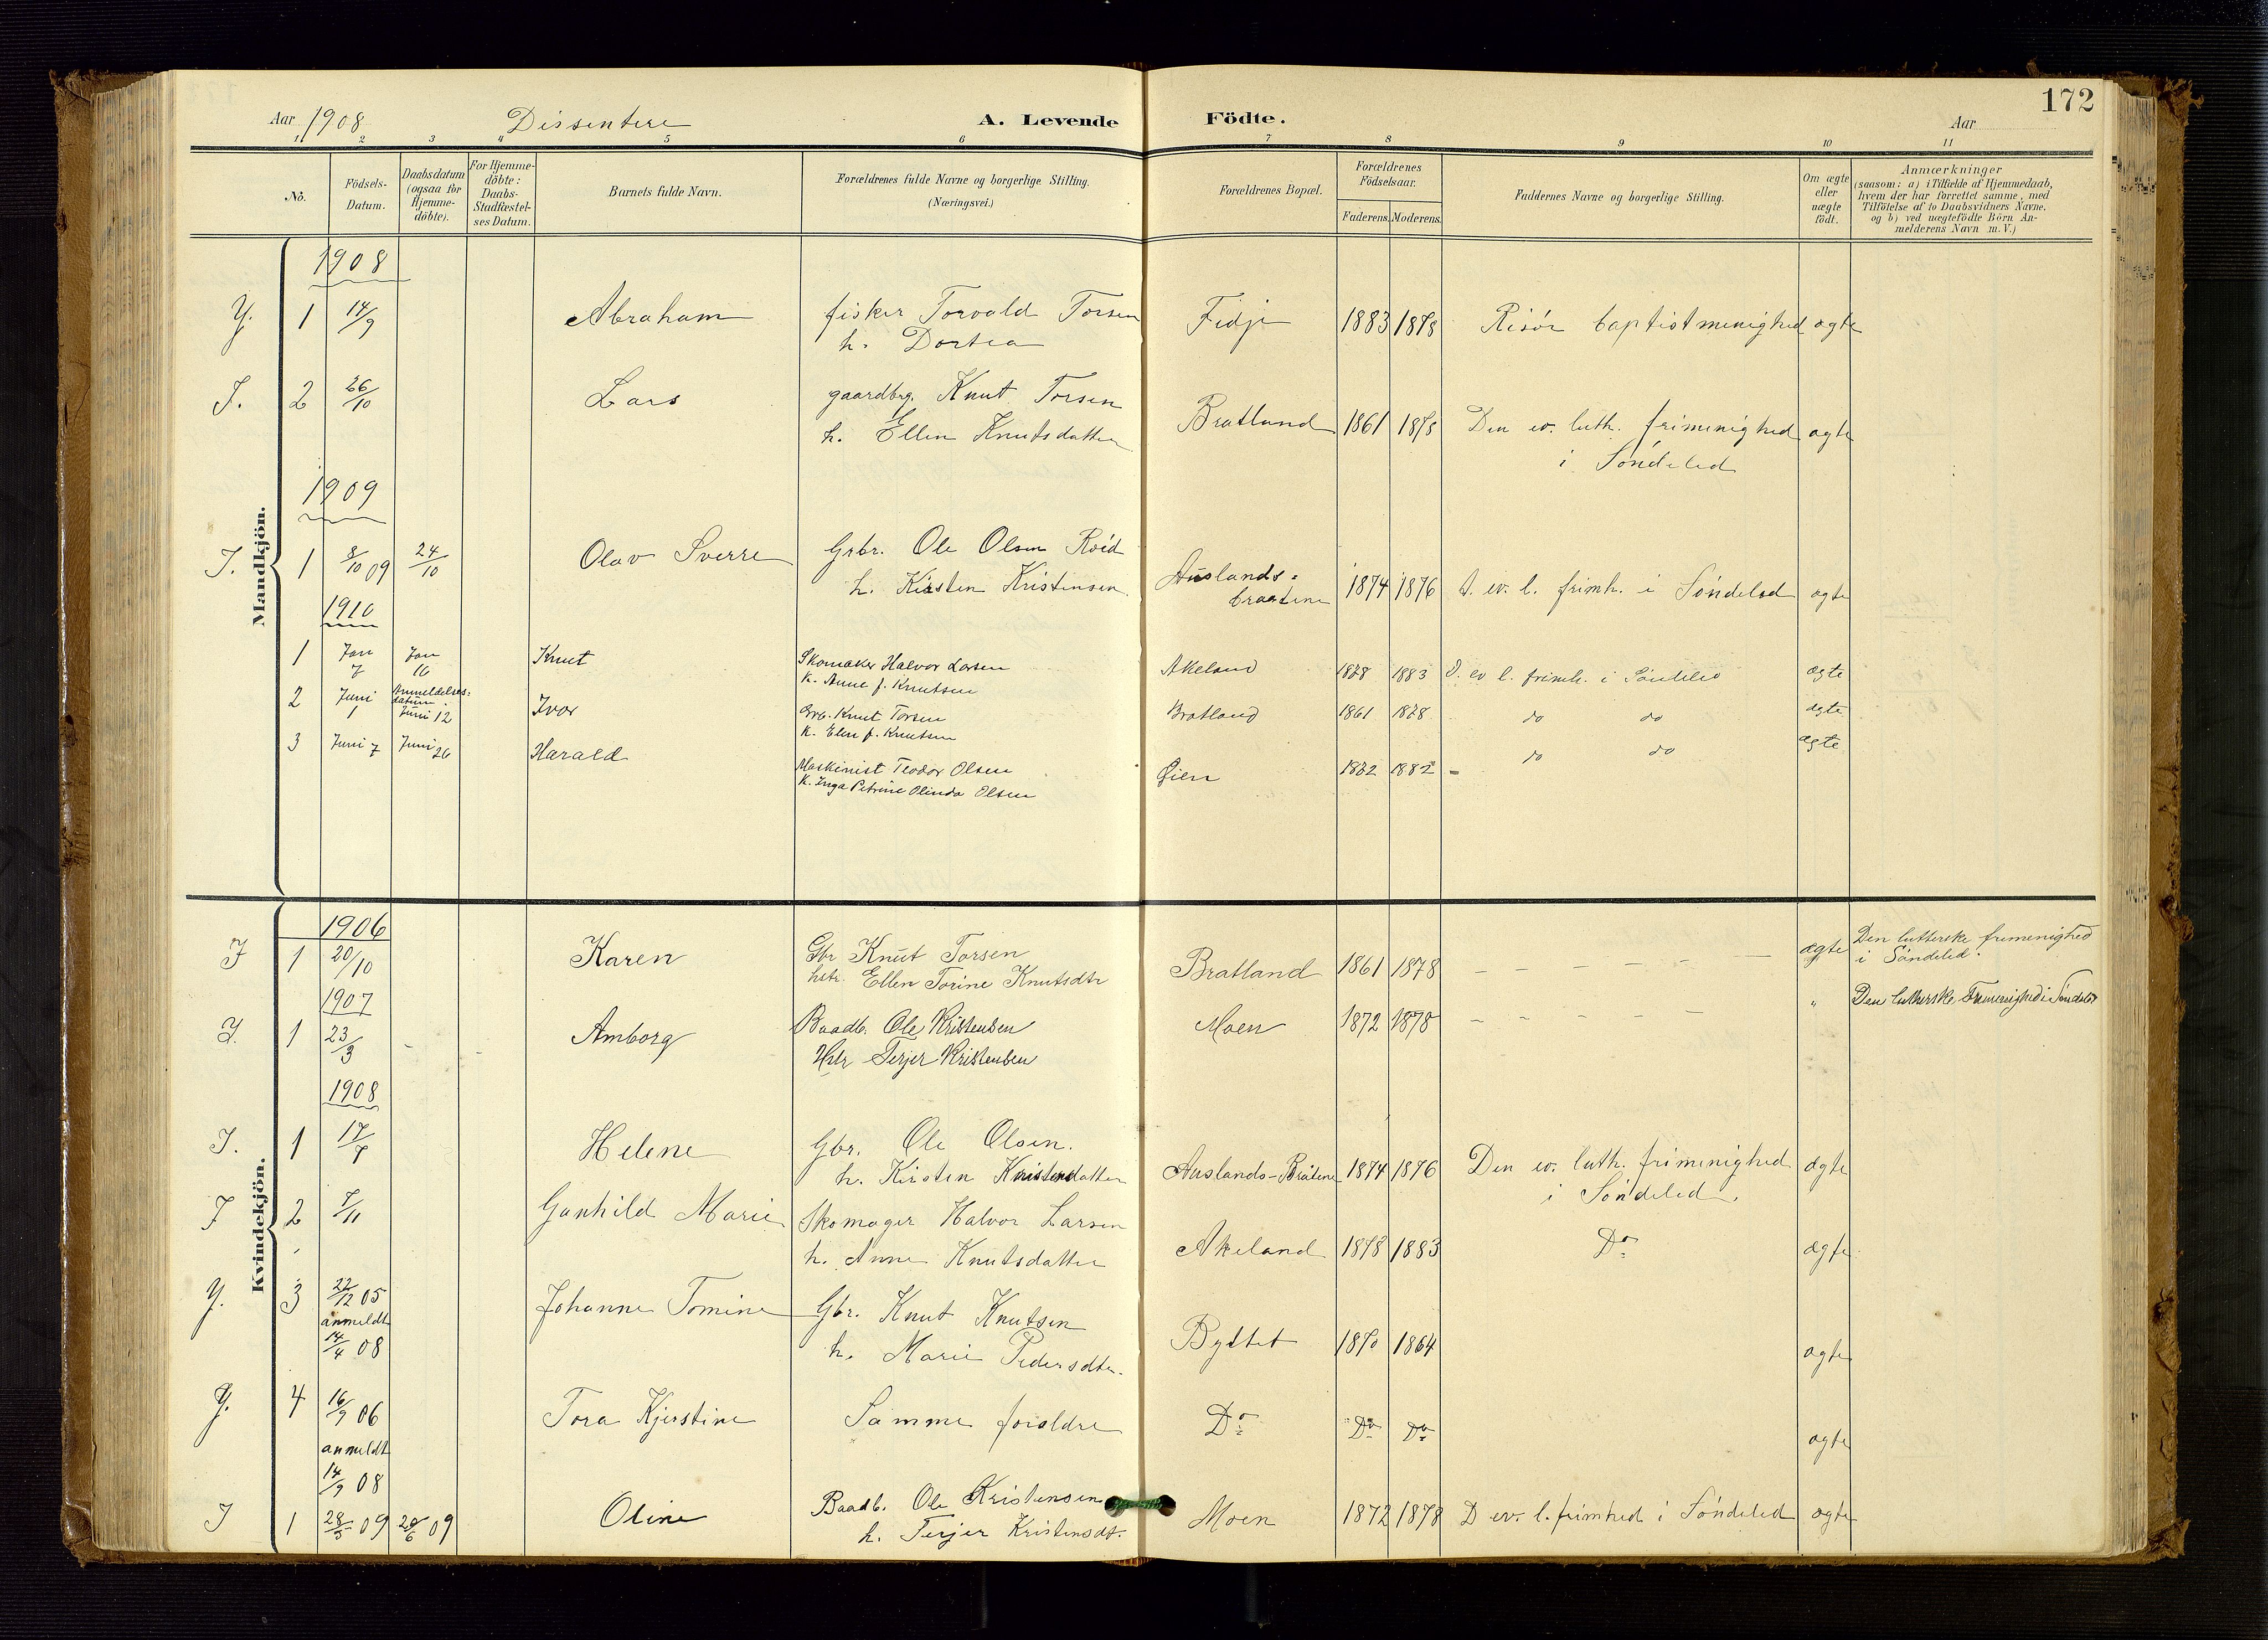 172
Aar 1908 Dissentere A. Levende Födte. Aar
1 2 3 4 5 6 7 8 9 10 11
No.
Födsels-
Datum.
Daabsdatum
(ogsaa for
Hjemme-
döbte).
For Hjemme-
döbte:
Daabs-
Stadfæstel-
ses Datum.
Barnets fulde Navn.
Forældrenes fulde Navne og borgerlige Stilling.
(Næringsvei.)
Forældrenes Bopæl.
Forældrenes
Födselsaar.
Faderens. Moderens.
Faddernes Navne og borgerlige Stilling.
Om ægte
eller
uægte
födt.
Anmærkninger
(saasom: a) i Tilfælde af Hjemmedaab,
hvem der har forrettet samme, med
Tilföielse af to Daabsvidners Navne.
og b) ved uægtefödte Börn An-
melderens Navn m. V.)
Mandkjön.
1908
Y. 1 14/9 Abraham fisker Torvald Torsen Fidje 1883 1878 Risör baptistmenighed ægte
h. Dortea
I. 2 26/10 Lars gaardbrg. Knut Torsen Bratland 1861 1878 Den ev. luth. frimenighed ægte
h. Ellen Knutsdatter i Söndeled
1909
I. 1 8/10 09 24/10 Olav Sverre Grbr. Ole Olsen Röid Auslands- 1874 1876 D. ev. l. frimh. i Söndeled ægte
h. Kirsten Kristensen braatene
1910
1 Jan 7 Jan 16 Knut Skomaker Halvor Larsen Akeland 1878 1883 D. ev l. frimh. i Söndeled ægte
k. Anne f. Knutsen
2 Juni 1 Anmeldelses-
datum
Juni 12 Ivar Grb. Knut Torsen Bratland 1861 1878 do do ægte
k. Elen f. Knutsen
3 Juni 7 Juni 26 Harald Maskinist Teodor Olsen Øien 1882 1882 do do ægte
k. Inga Petrine Olinda Olsen
Kvindekjön.
1906
I 1 20/10 Karen Gbr Knut Torsen Bratland 1861 1878 ægte Den lutterske frimenighed
hstr. Ellen Torine Knutsdtr i Söndeled.
1907
I. 1 23/3 Amborg Baadb. Ole Kristensen Moen 1872 1878 " Den lutherske Frimenighed i Söndeled
Hstr Terjer Kristensen
1908
I. 1 17/7 Helene Gbr. Ole Olsen. Auslands-Bråtene 1874 1876 Den ev. luth. frimenighed ægte
h. Kirsten Kristensdatter i Söndeled.
I 2 7/11 Gunhild Marie Skomager Halvor Larsen Akeland 1878 1883 Do ægte
h. Anne Knutsdatter
Y. 3 22/12 05 Johanne Tomine Gbr. Knut Knutsen Byttet 1870 1864 ægte
anmeldt
14/4 08 h. Marie Pedersdtr.
Y. 4 16/9 06 Tora Kjerstine Samme forældre Do Do Do ægte
anmeldt
14/9 08
I 1 28/5 09 20/6 09 Oline Baadb. Ole Kristensen Moen 1872 1878 D ev. l. frimhed i Söndeled ægte
h. Terjer Kristensdt.